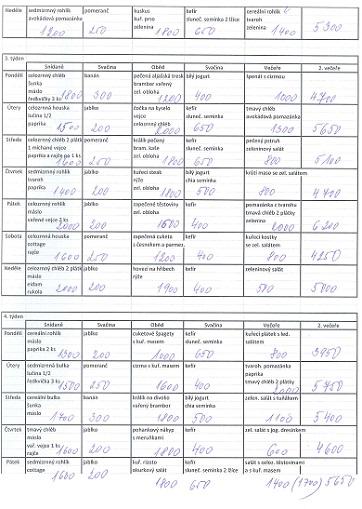 Neděle
sedmizrnný rohlík
avokádová pomazánka
1200
pomeranč
250
kuskus
kuř. prso
zelenina
1800
kefír
sluneč. semínka 2 lžíce
650
cereální rohlík
tvaroh
zelenina
1400
5300
3. týden
Snídaně
Svačina
Oběd
Svačina
Večeře
2. večeře
Pondělí
celozrnný chléb
šunka
máslo
ředkvičky 3 ks
1800
banán
300
pečená aljašská treska
brambor vařený
zel. obloha
1200
bílý jogurt
400
špenát s cizrnou
1000
4700
Úterý
celozrnná houska
lučina 1/2
paprika
1500
jablko
200
čočka na kyselo
vejce
celozrnný chléb
2000
kefír
sluneč. semínka
650
tmavý chléb
avokádová pomazánka
1300
5650
Středa
celozrnný chléb 2 plátky
1 míchané vejce
paprika a rajče po 1 ks
1600
pomeranč
250
králík pečený
bram. kaše
zel. obloha
1800
kefír
sluneč. semínka
650
pečený pstruh
zeleninový salát
800
5100
Čtvrtek
sedmizrnný rohlík
tvaroh
paprika
1400
jablko
200
kuřecí steak
rýže
zel. obloha
1800
bílý jogurt
chia semínka
500
krůtí maso se zel. salátem
800
4700
Pátek
celozrnný rohlík
máslo
vařené vejce 2 ks
2000
jablko
200
zapečené těstoviny
zel. obloha
1600
kefír
400
pomazánka z tvarohu
tmavý chléb 2 plátky
zelenina
2000
6200
Sobota
celozrnná houska
cottage
rajče
1600
pomeranč
250
zapečená cuketa
s česnekem a parmez.
1200
kefír
400
kuřecí kostky
se zel. salátem
800
4250
Neděle
celozrnný chléb 2 plátky
máslo
eidam
rukola
2000
jablko
200
hovězí na hřibech
rýže
1900
kefír
400
zeleninový salát
500
5000
4. týden
Snídaně
Svačina
Oběd
Svačina
Večeře
2. večeře
Pondělí
cereální rohlík
máslo
paprika 2 ks
1300
jablko
200
cuketové špagety
s kuř. masem
1000
kefír
sluneč. semínka
650
kuřecí plátek s led.
salátem
800
3950
Úterý
sedmizrnná bulka
lučina 1/2
ředkvička 3 ks
1500
pomeranč
250
s kuř. masem
1600
kefír
400
tvaroh. pomazánka
paprika
tmavý chléb 2 plátky
2000
5750
Středa
cereální bulka
šunka
máslo
1700
banán
300
králík na divoko
vařený brambor
1800
bílý jogurt
chia semínka
500
zelen. salát s tuňákem
1100
5400
Čtvrtek
tmavý chléb
máslo
vař. vejce 1 ks
rajče
1600
jablko
200
pohankový nákyp
s meruňkami
1800
kefír
400
zel. salát s jog. dresinkem
600
4600
Pátek
sedmizrnný rohlík
cottage
1600
jablko
200
kuř. rizoto
okurkový salát
1800
kefír
sluneč. semínka 2 lžíce
650
salát s celoz. těstovinami
a s kuř. masem
1400 (1700)
5650